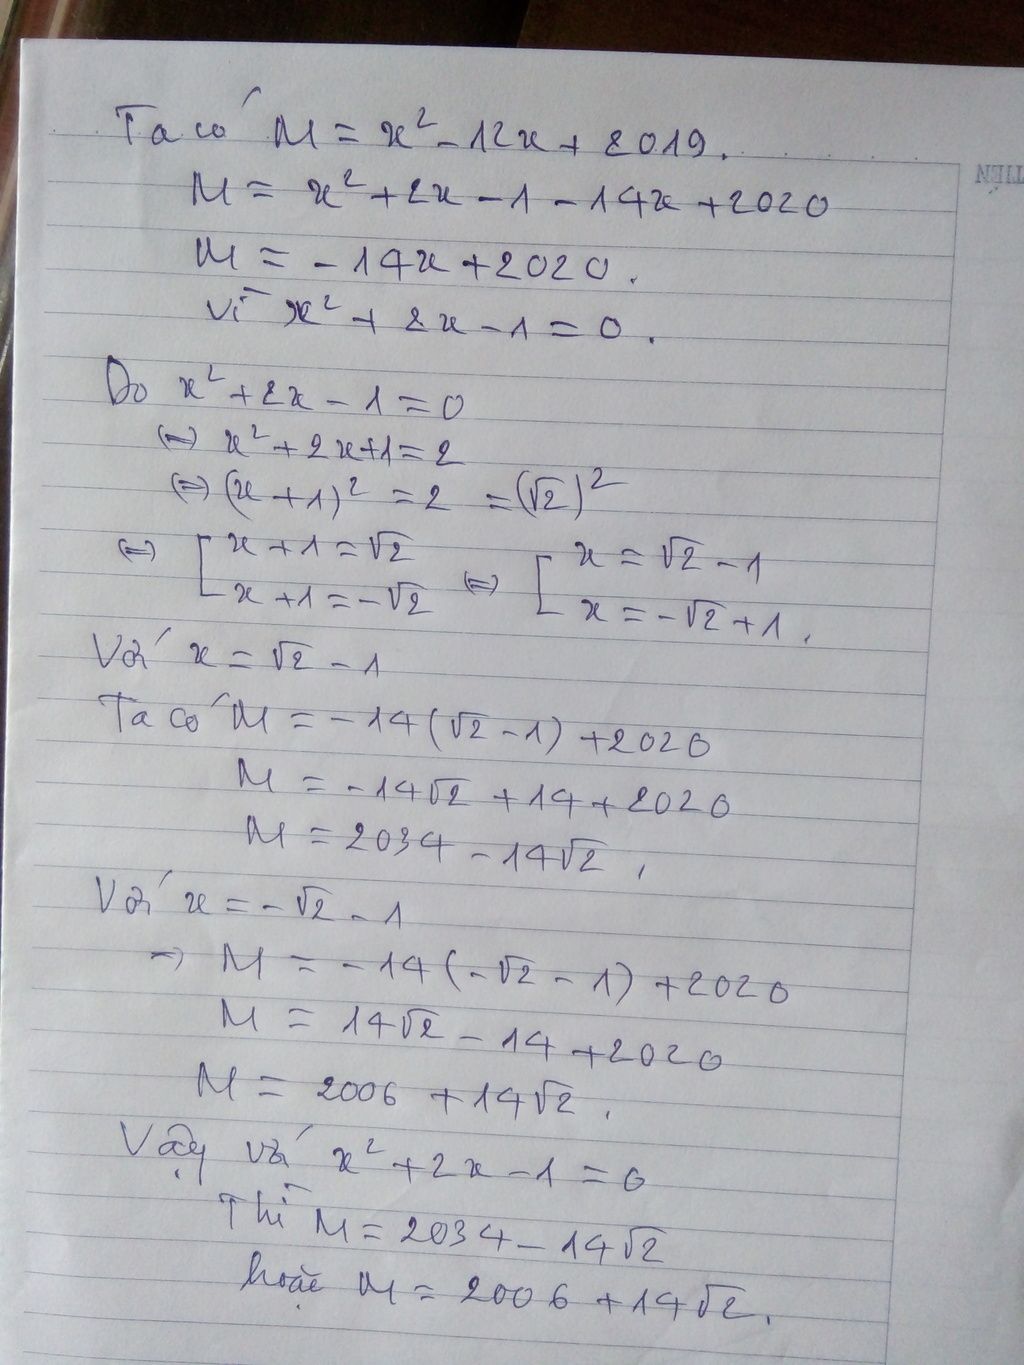 Ta có M = x² - 12x + 2019.
M = x² + 2x - 1 - 14x + 2020
M = - 14x + 2020.
vì x² + 2x - 1 = 0.
Do x² + 2x - 1 = 0
(=) x² + 2x + 1 = 2
(=) (x + 1)² = 2 = (√2)²
(=) [ x + 1 = √2 (=) [ x = √2 - 1
x + 1 = -√2 x = -√2 + 1.
Với x = √2 - 1
Ta có M = -14(√2 - 1) + 2020
M = -14√2 + 14 + 2020
M = 2034 - 14√2,
Với x = -√2 - 1
=> M = -14(-√2 - 1) + 2020
M = 14√2 - 14 + 2020
M = 2006 + 14√2.
Vậy với x² + 2x - 1 = 0
Thì M = 2034 - 14√2
hoặc M = 2006 + 14√2.